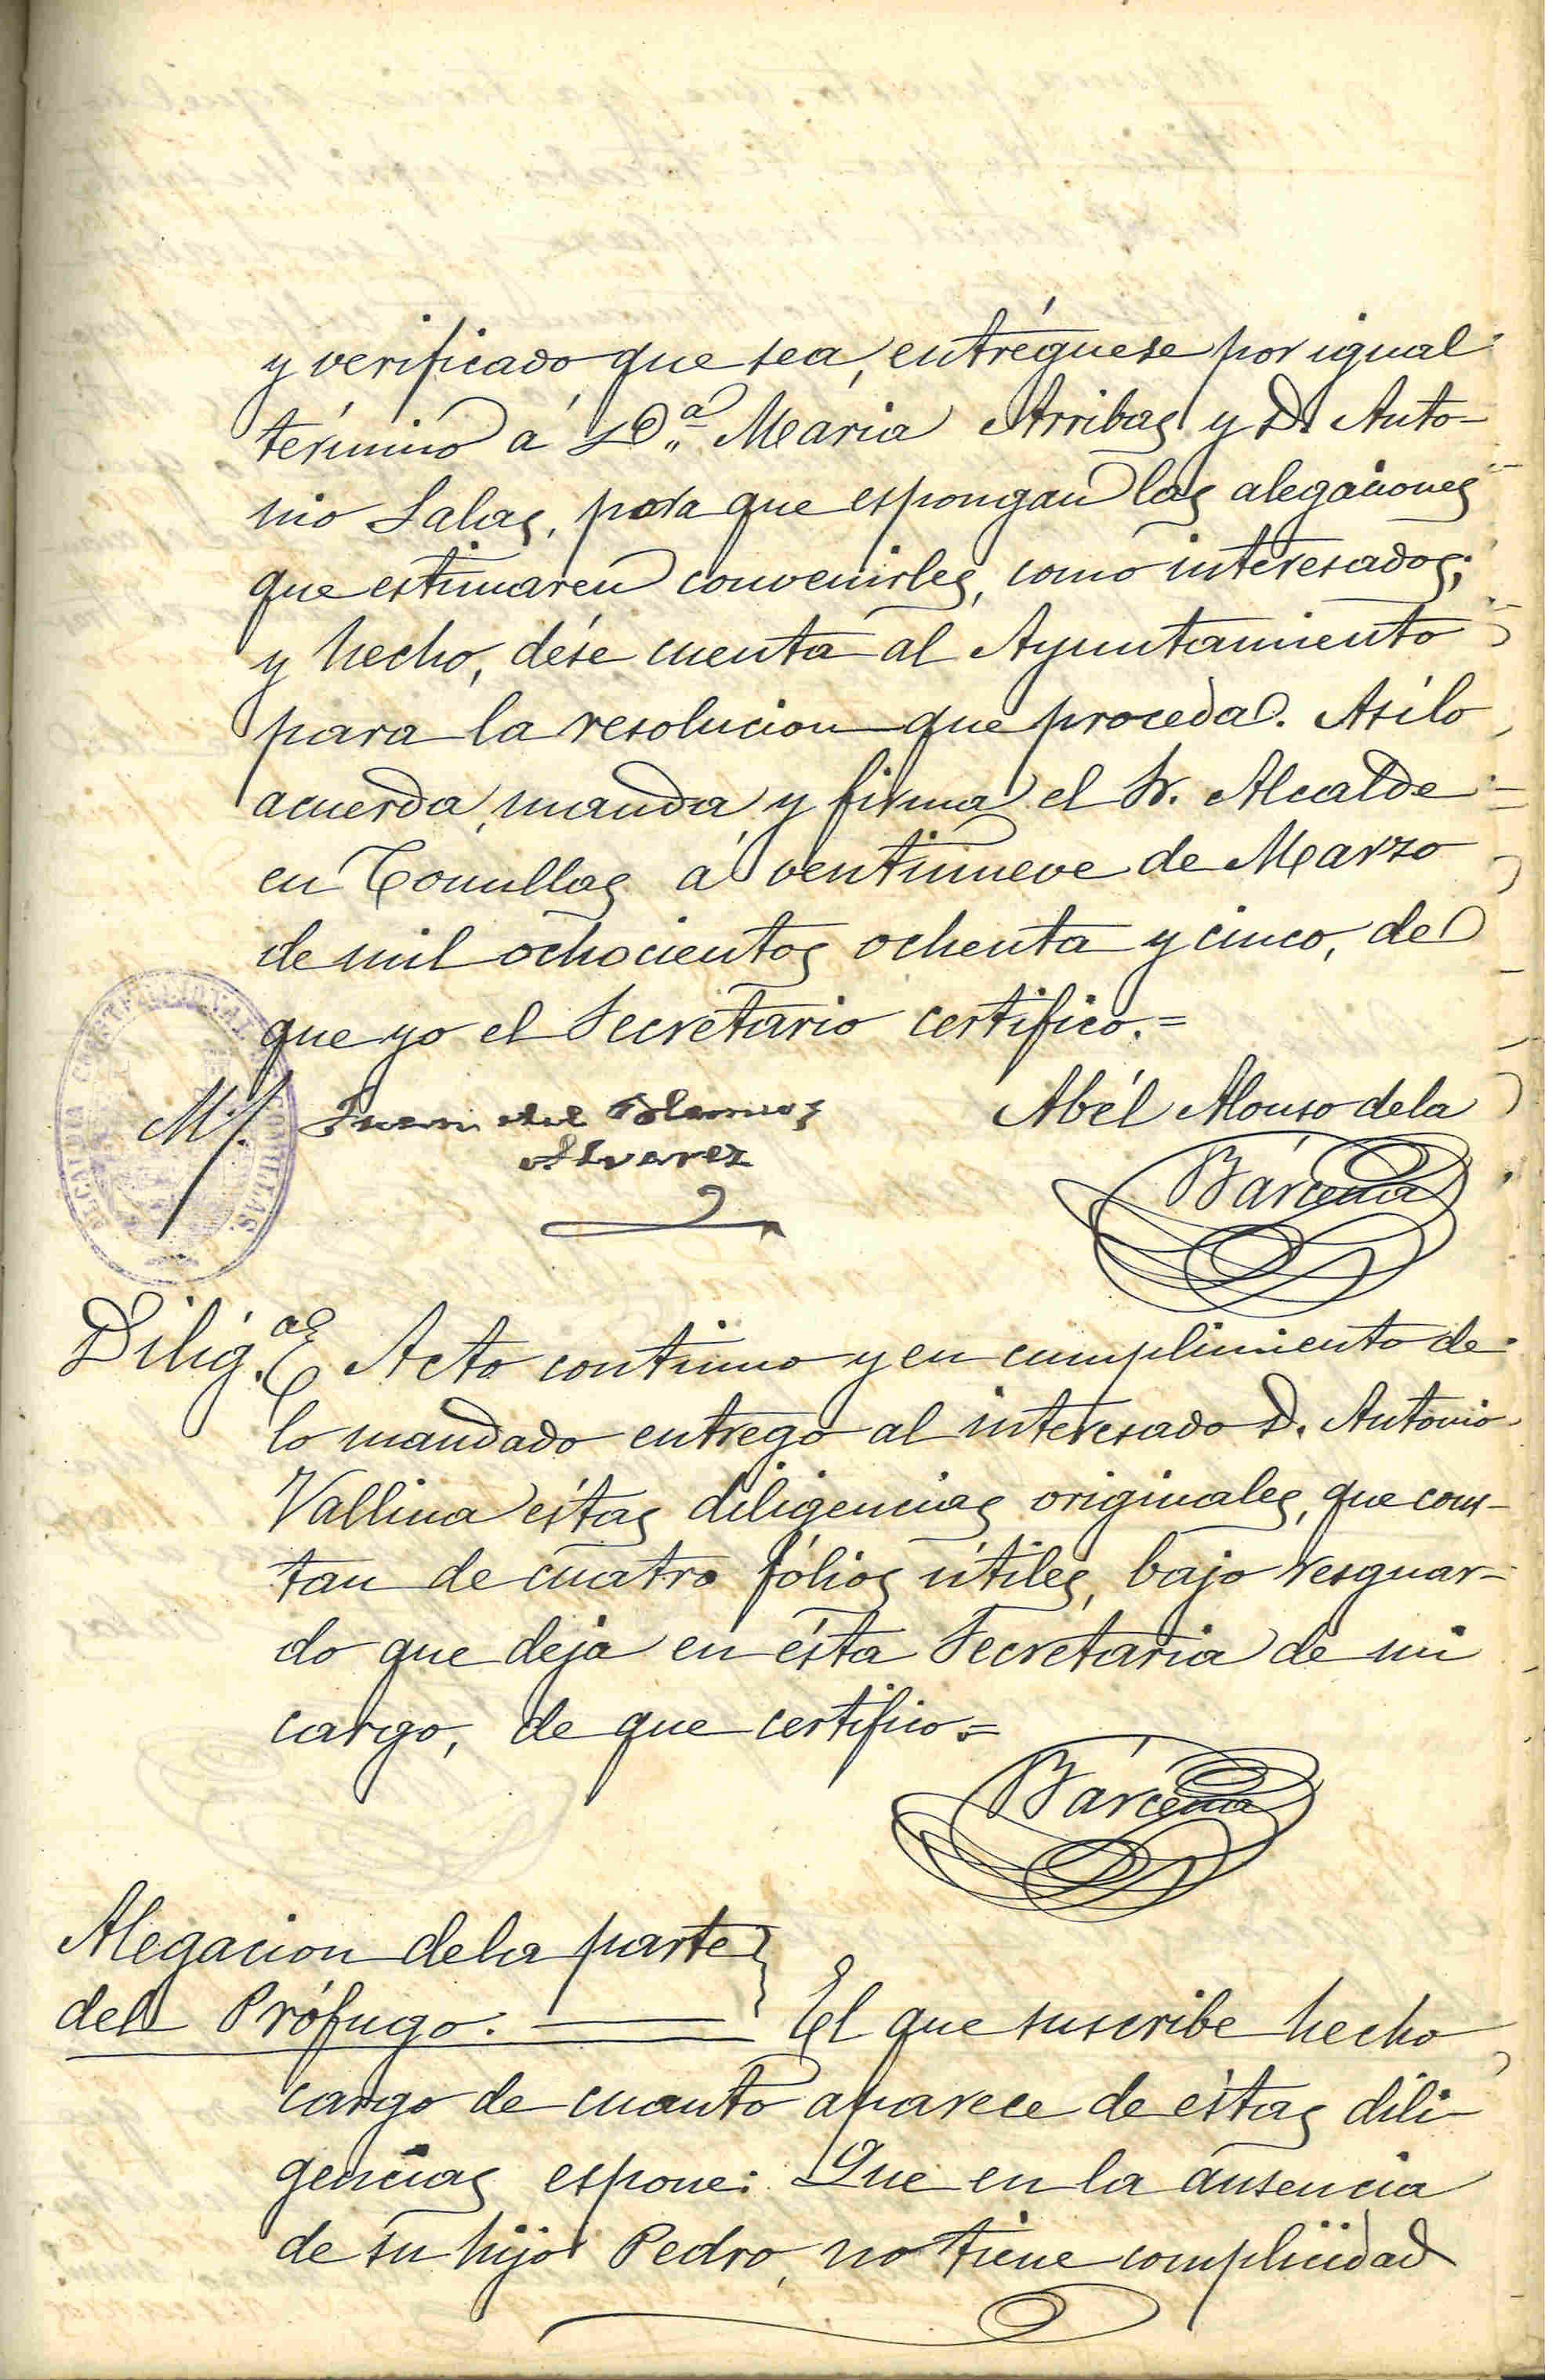 y verificado que sea, entréguese por igual
término á D.ª Maria Arribas y D. Anto-
nio Salas, para que espongan las alegaciones
que estimaren convenirles, como interesados;
y hecho, dése cuenta al Ayuntamiento
para la resolucion que proceda. Asi lo
acuerda, manda y firma el Sr. Alcalde
en Comillas á ventinueve de Marzo
de mil ochocientos ochenta y cinco, de
que yo el Secretario certifico.=
ALCALDIA CONSTITUCIONAL DE COMILLAS
Juan del Abel Alonso de la
Alvarez
Bárcena
Dilig.as Acto continuo y en cumplimiento de
lo mandado entrego al interesado D. Antonio
Vallina éstas diligencias originales, que cons-
tan de cuatro fólios útiles, bajo resguar-
do que deja en ésta Secretaria de mi
cargo, de que certifico.=
Bárcena
Alegacion de la parte
del Prófugo. El que suscribe hecho
cargo de cuanto aparece de éstas dili-
gencias espone: Que en la ausencia
de su hijo Pedro, no tiene complicidad